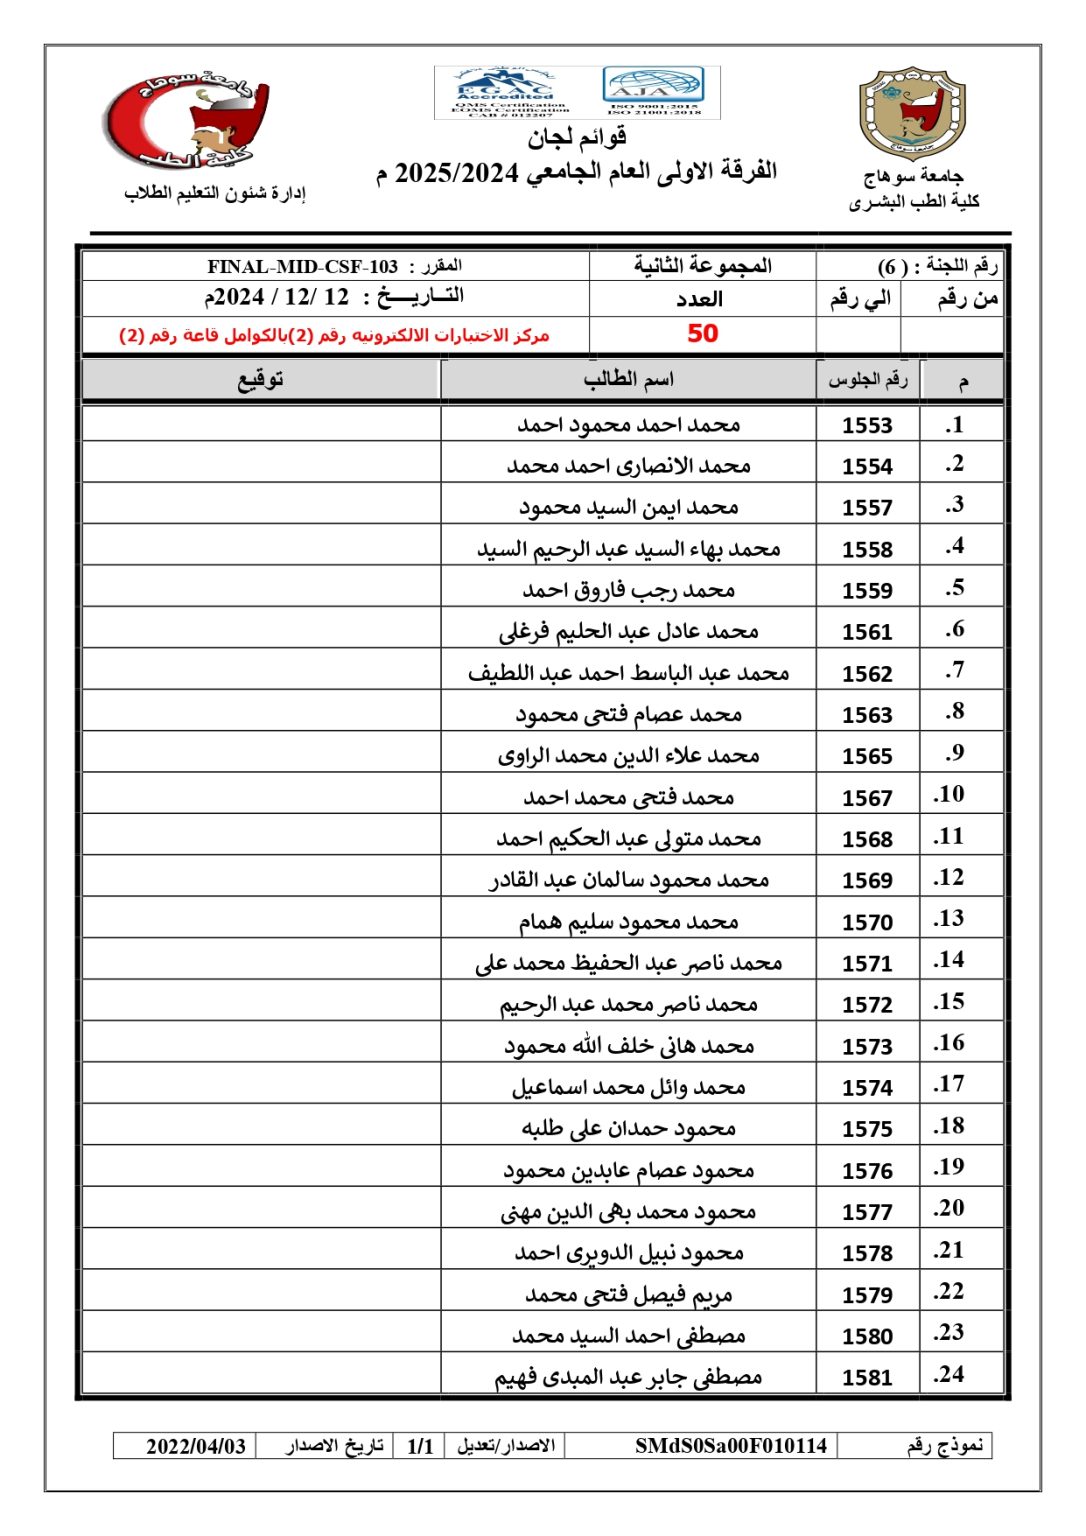 جامعة سوهاج
كلية الطب
إدارة شئون التعليم الطلاب
EGAC
Accredited
QMS Certification
EOMS Certification
CAB # 012207
AJA
ISO 9001:2015
ISO 21001:2018
جامعة سوهاج
جامعة سوهاج
كلية الطب البشرى
قوائم لجان
الفرقة الاولى العام الجامعي 2025/2024 م
رقم اللجنة : ( 6) المجموعة الثانية المقرر : FINAL-MID-CSF-103
من رقم الي رقم العدد التــاريــــخ : 12 /12 / 2024م
50 مركز الاختبارات الالكترونيه رقم (2)بالكوامل قاعة رقم (2)
م رقم الجلوس اسم الطالب توقيع
1. 1553 محمد احمد محمود احمد
2. 1554 محمد الانصارى احمد محمد
3. 1557 محمد ايمن السيد محمود
4. 1558 محمد بهاء السيد عبد الرحيم السيد
5. 1559 محمد رجب فاروق احمد
6. 1561 محمد عادل عبد الحليم فرغلى
7. 1562 محمد عبد الباسط احمد عبد اللطيف
8. 1563 محمد عصام فتحى محمود
9. 1565 محمد علاء الدين محمد الراوى
10. 1567 محمد فتحى محمد احمد
11. 1568 محمد متولى عبد الحكيم احمد
12. 1569 محمد محمود سالمان عبد القادر
13. 1570 محمد محمود سليم همام
14. 1571 محمد ناصر عبد الحفيظ محمد على
15. 1572 محمد ناصر محمد عبد الرحيم
16. 1573 محمد هانى خلف الله محمود
17. 1574 محمد وائل محمد اسماعيل
18. 1575 محمود حمدان على طلبه
19. 1576 محمود عصام عابدين محمود
20. 1577 محمود محمد بهى الدين مهنى
21. 1578 محمود نبيل الدويرى احمد
22. 1579 مريم فيصل فتحى محمد
23. 1580 مصطفى احمد السيد محمد
24. 1581 مصطفى جابر عبد المبدى فهيم
نموذج رقم SMdS0Sa00F010114 الاصدار/تعديل 1/1 تاريخ الاصدار 2022/04/03